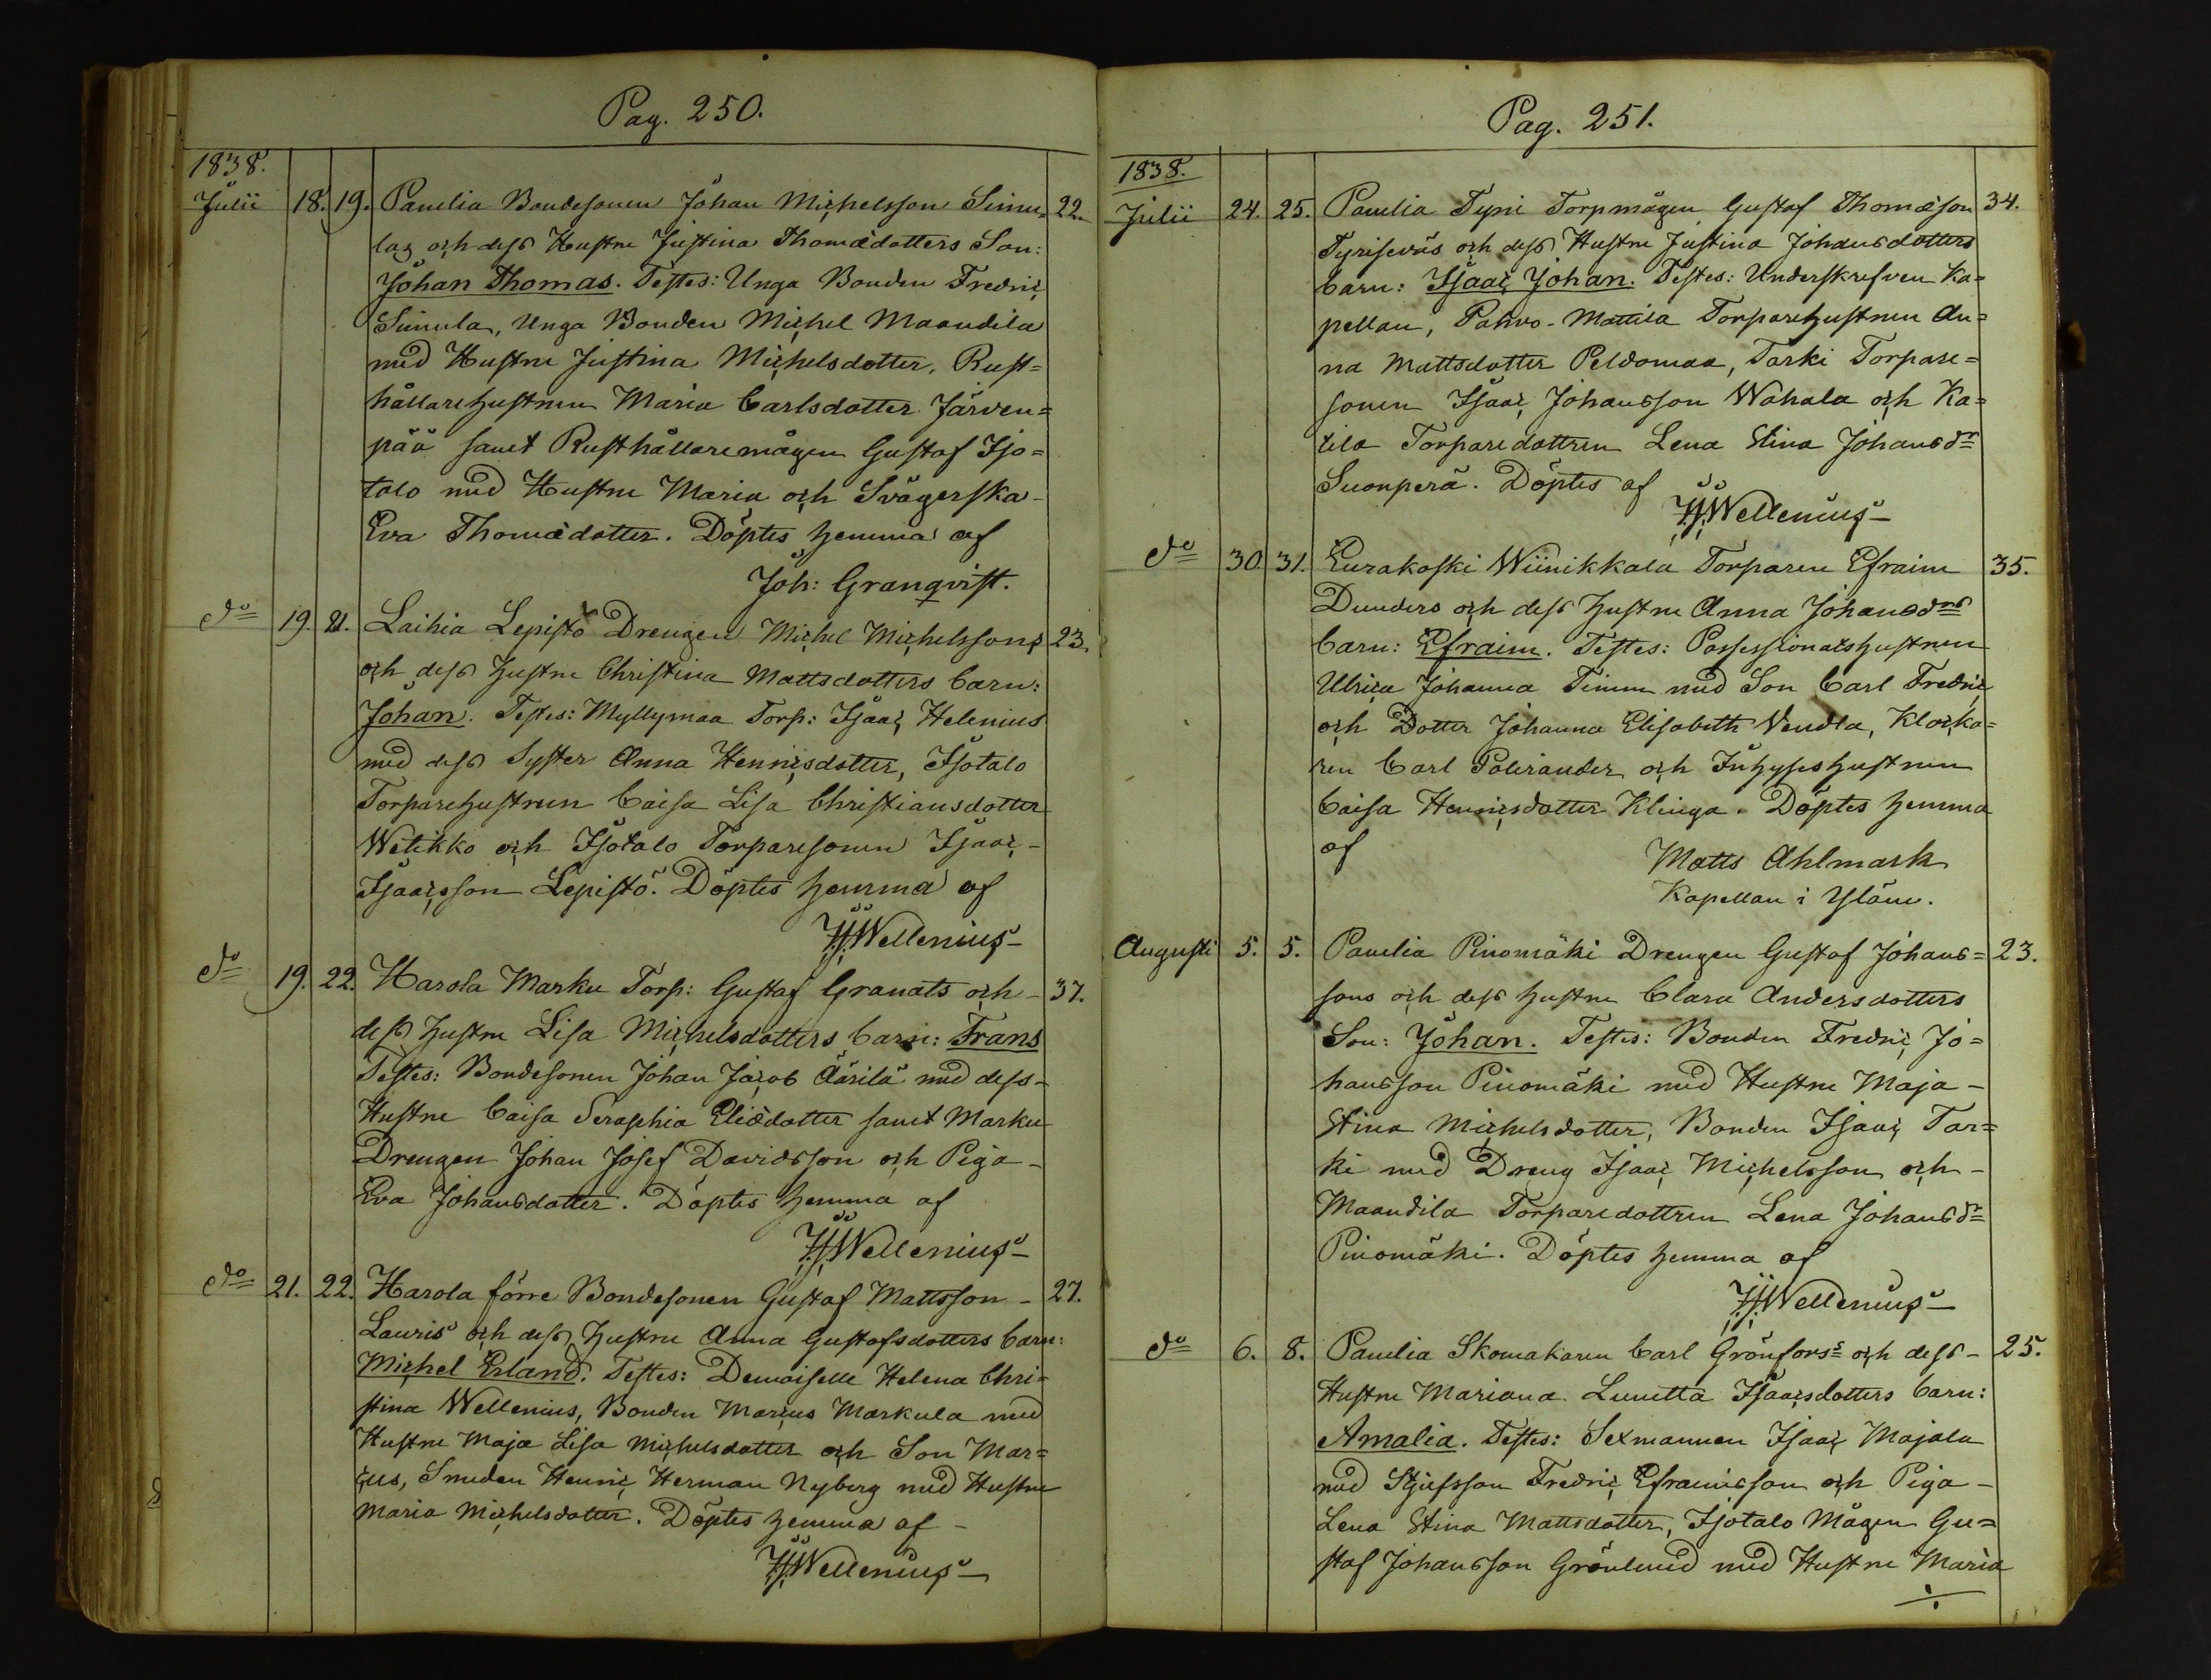 Pag. 250.
1838.
Julii 18. 19. Panelia Bondesonen Johan Michelsson Simu= 22.
las och dess Hustru Justina Thomædotters Son:
Johan Thomas. Testes: Unga Bonden Fredric
Simula, Unga Bonden Michel Maandila
med Hustru Justina Michelsdotter, Rust=
hållarehustrun Maria Carlsdotter Järven=
pää samt Rusthållaremågen Gustaf Iso=
talo med Hustru Maria och Svägerska
Eva Thomædotter. Döptes hemma af
Joh: Granqvist.
do 19. 21. Laihia Lepistö Drengen Michel Michelssons 23.
och dess hustru Christina Mattsdotters barn:
Johan. Testes: Myllymaa Torp: Isaac Helenius
med dess Syster Anna Henricsdotter, Isotalo
Torparehustrun Caisa Lisa Christiansdotter
Witikko och Isotalo Torparesonen Isaac
Isaacsson Lepistö. Döptes hemma af
Wellenius
do 19. 22. Harola Marku Torp: Gustaf Granats och 37.
dess hustru Lisa Michelsdotters barn: Frans
Testes: Bondesonen Johan Jacob Äärilä med dess
Hustru Caisa Seraphia Eliædotter samt Marku
Drengen Johan Josef Davidsson och Piga
Eva Johansdotter. Döptes hemma af
Wellenius
do 21. 22. Harola förre Bondesonen Gustaf Mattsson 27.
Lauris och dess hustru Anna Gustafsdotters barn:
Michel Erland. Testes: Demoiselle Helena Chri=
stina Wellenius, Bonden Marcus Markula med
Hustru Maja Lisa Michelsdotter och Son Mar=
cus, Smeden Henric Herman Nyberg med Hustru
Maria Michelsdotter. Döptes hemma af
Wellenius
Pag. 251.
1838.
Julii 24. 25. Panelia Tyni Torpmågen Gustaf Thomæson 34.
Tyniseväs och dess Hustru Justina Johansdotters
barn: Isaac Johan. Testes: Underskrefven Ka=
pellan, Pahvo-Mattila Torparehustrun An=
na Mattsdotter Peldomaa, Tarki Torpare=
sonen Isaac Johansson Wahala och Ka=
tila Torparedottren Lena Stina Johansdr
Suonperä. Döptes af
Wellenius
do 30. 31. Eurakoski Wiinikkala Torparen Efraim 35.
Dunders och dess hustru Anna Johansdrs
barn: Efraim. Testes: Possessionatshustrun
Ulrica Johanna Timm med Son Carl Fredric
och Dotter Johanna Elisabeth Vendla, Klocka=
ren Carl Polviander och Inhyseshustrun
Caisa Henricsdotter Klinga. Döptes hemma
af
Matts Ahlmark
Kapellan i Yläne.
Augusti 5. 5. Panelia Pinomäki Drengen Gustaf Johans= 23.
sons och dess hustru Clara Andersdotters
Son: Johan. Testes: Bonden Fredric Jo=
hansson Pinomäki med Hustru Maja
Stina Michelsdotter, Bonden Isaac Tar=
ki med Dreng Isaac Michelsson och
Maandila Torparedottren Lena Johansdr
Pinomäki. Döptes hemma af
Wellenius
do 6. 8. Panelia Skomakaren Carl Grönfors: och dess 25.
Hustru Mariana Lunetta Isaacsdotters barn:
Amalia. Testes: Sexmannen Isaac Majala
med Stjufsson Fredric Efraimsson och Piga
Lena Stina Mattsdotter, Isotalo Mågen Gu=
staf Johansson Grönlund med Hustru Maria